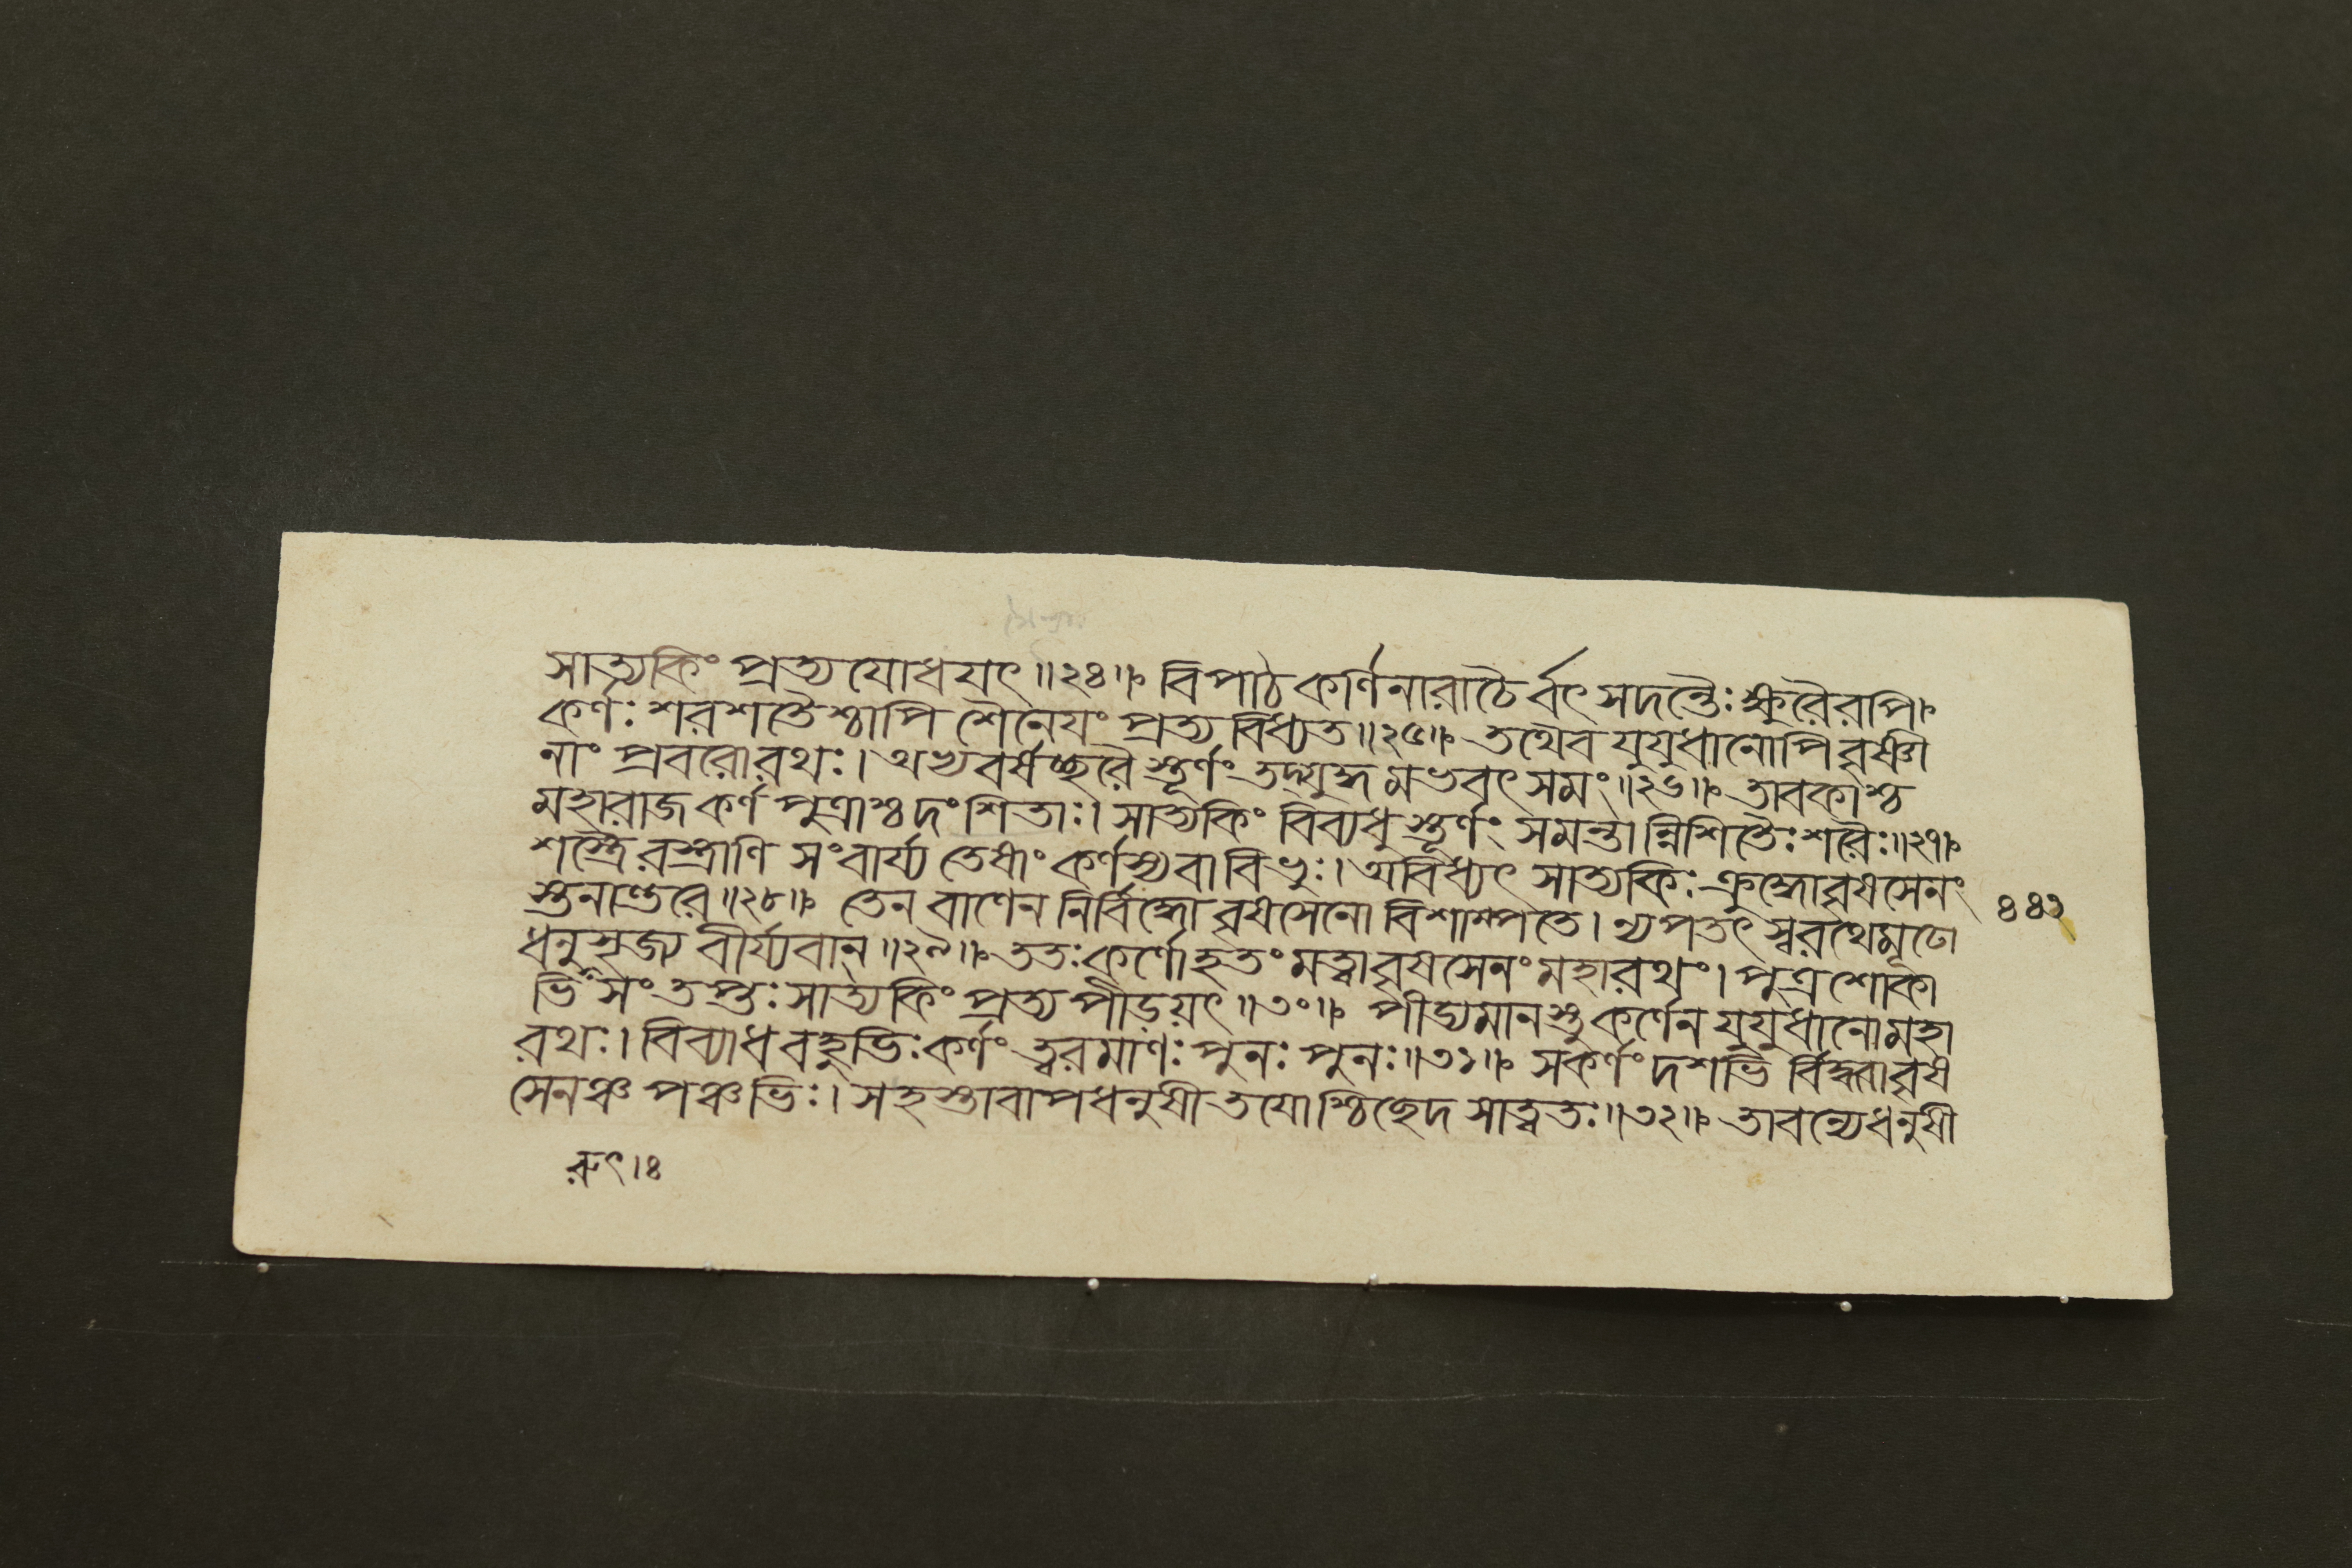 সাত্যকিং প্রত্যযোধযৎ॥২৪॥ বিপাঠকর্ণিনারাচৈর্বৎসদন্তৈঃ ক্ষুরৈরপি।
কর্ণঃ শরশতৈশ্চাপি শৈনেযং প্রত্যবিধ্যত॥২৫॥ তথৈব যুযুধানোপি বৃষ্ণী
নাং প্রবরোরথঃ। অভ্যবর্ষচ্ছরৈস্তূর্ণং তদ্যুদ্ধমভবৎ সমং॥২৬॥ তাবকাশ্চ
মহারাজ কর্ণপুত্রাশ্চ দংশিতাঃ। সাত্যকিং বিব্যধুস্তূর্ণং সমন্তান্নিশিতৈঃ শরৈঃ॥২৭॥
অস্ত্রৈরস্ত্রাণি সংবার্য্য তেষাং কর্ণস্য বা বিভুঃ। অবিধ্যৎ সাত্যকিঃ ক্রুদ্ধো বৃষসেনং
স্তনান্তরে॥২৮॥ তেন বাণেন নির্বিদ্ধো বৃষসেনো বিশাম্পতে। ন্যপতৎ স্বরথে মূঢো
ধনুসৃজ্য বীর্য্যবান্॥২৯॥ ততঃ কর্ণো হতং মত্বা বৃষসেনং মহারথং। পুত্রশোকা
ভিসংতপ্তঃ সাত্যকিং প্রত্যপীড়য়ৎ॥৩০॥ পীড্যমানস্তু কর্ণেন যুযুধানো মহা
রথঃ। বিব্যাধ বহুভিঃ কর্ণং ত্বরমাণঃ পুনঃ পুনঃ॥৩১॥ স কর্ণং দশভির্বিদ্ধ্বা বৃষ
সেনঞ্চ পঞ্চভিঃ। সহস্তাবাপধনুষী তযোশ্চিচ্ছেদ সাত্বতঃ॥৩২॥ তাবন্যে ধনুষী
৪৪২
রুৎ।৪